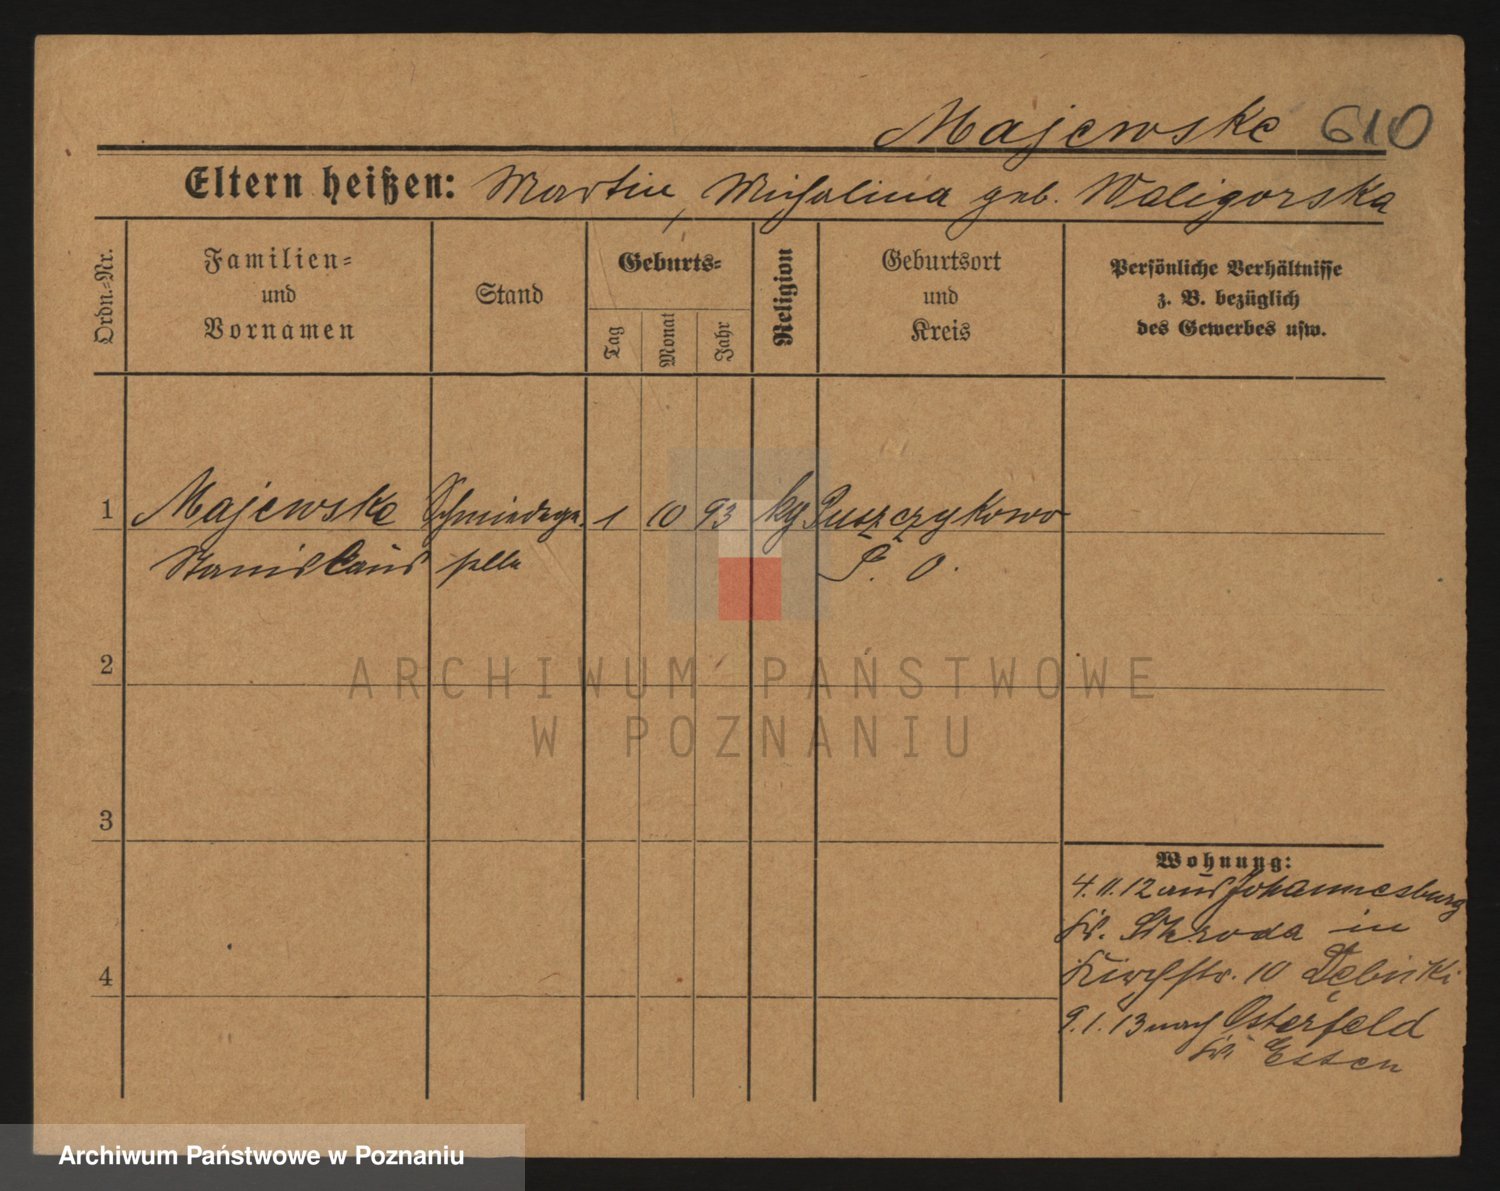 Majewske 610
Eltern heißen: Martin, Michalina geb. Waligorska
Ordn.=Nr.
Familien=
und
Vornamen
Stand
Geburts=
Tag
Monat
Jahr
Religion
Geburtsort
und
Kreis
Persönliche Verhältnisse
z. B. bezüglich
des Gewerbes usw.
1 Majewske Schmiedege. 1 10 93 kg Puszczykowo
Stanislaus selle P. O.
2
3
4
Wohnung:
4.11.12 aus Johannesburg
Kr. Schroda in
Kirchstr. 10
9.1.13 nach Osterfeld
Kr. Essen
ARCHIWUM PAŃSTWOWE
W POZNANIU
Archiwum Państwowe w Poznaniu